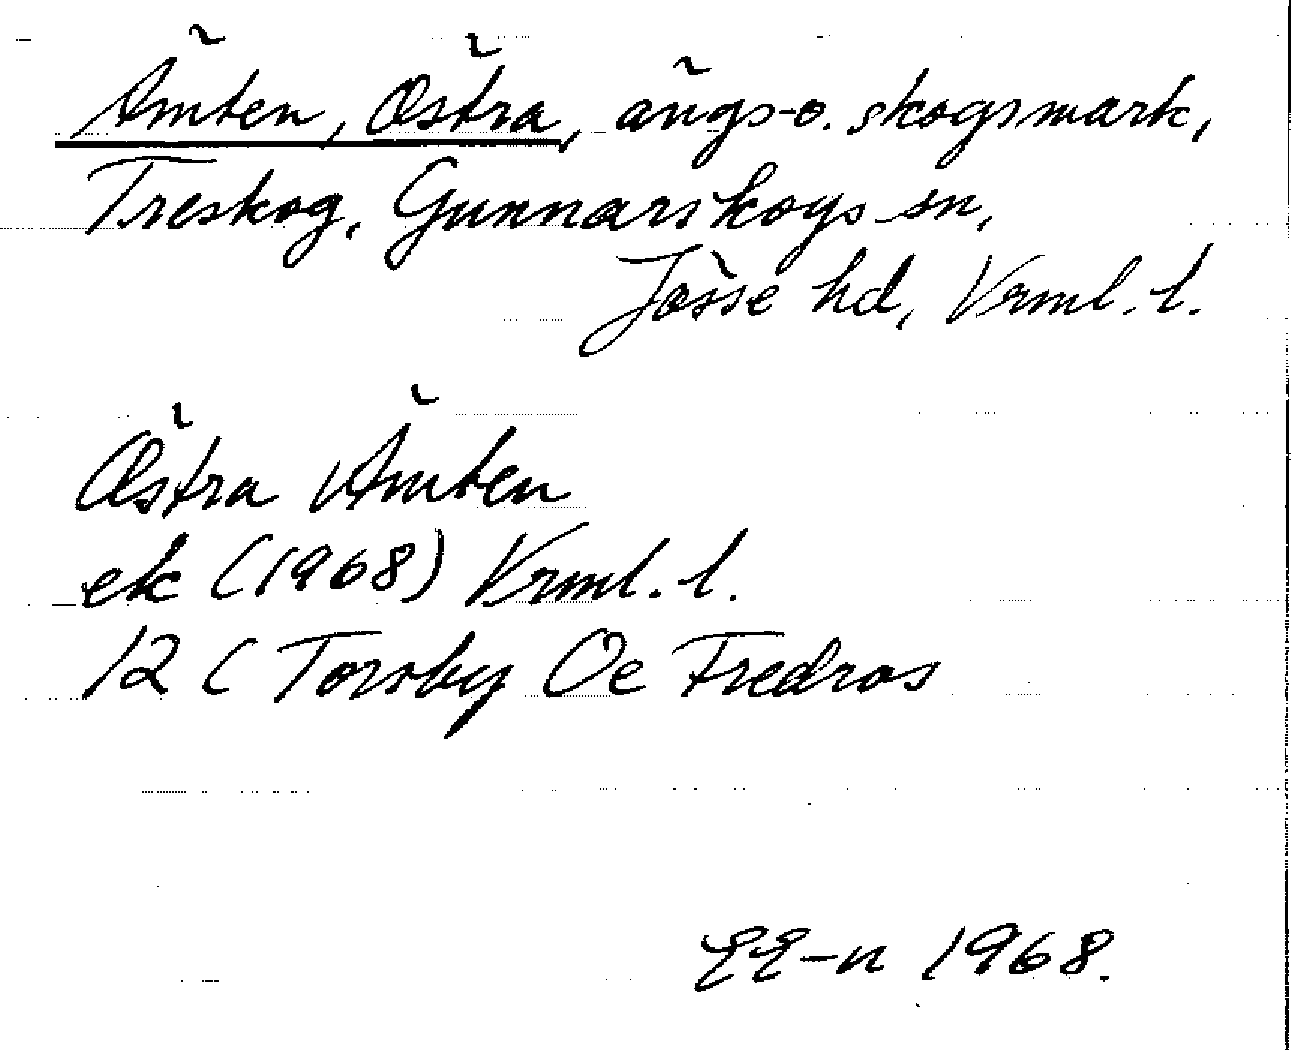 Ämten, Östra, ängs- o. skogsmark,
Treskog, Gunnarskogs sn,
Jösse hd, Vrml. l.
Östra Ämten
ek (1968) Vrml. l.
12 C Torsby Öe Fredros
EE-n 1968.